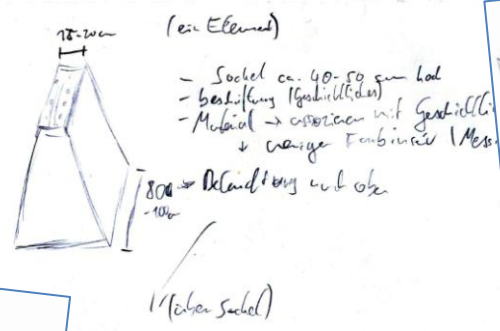 15-20cm
(ein Element)
- Sockel ca. 40-50 cm hoch
- beschriftung (Geschichtliches)
- Material → assoziieren mit Geschichtli
↓ weniger Farbinseln / Mess
80
-100cm
→ Beleuchtung nach oben
(über Sockel)